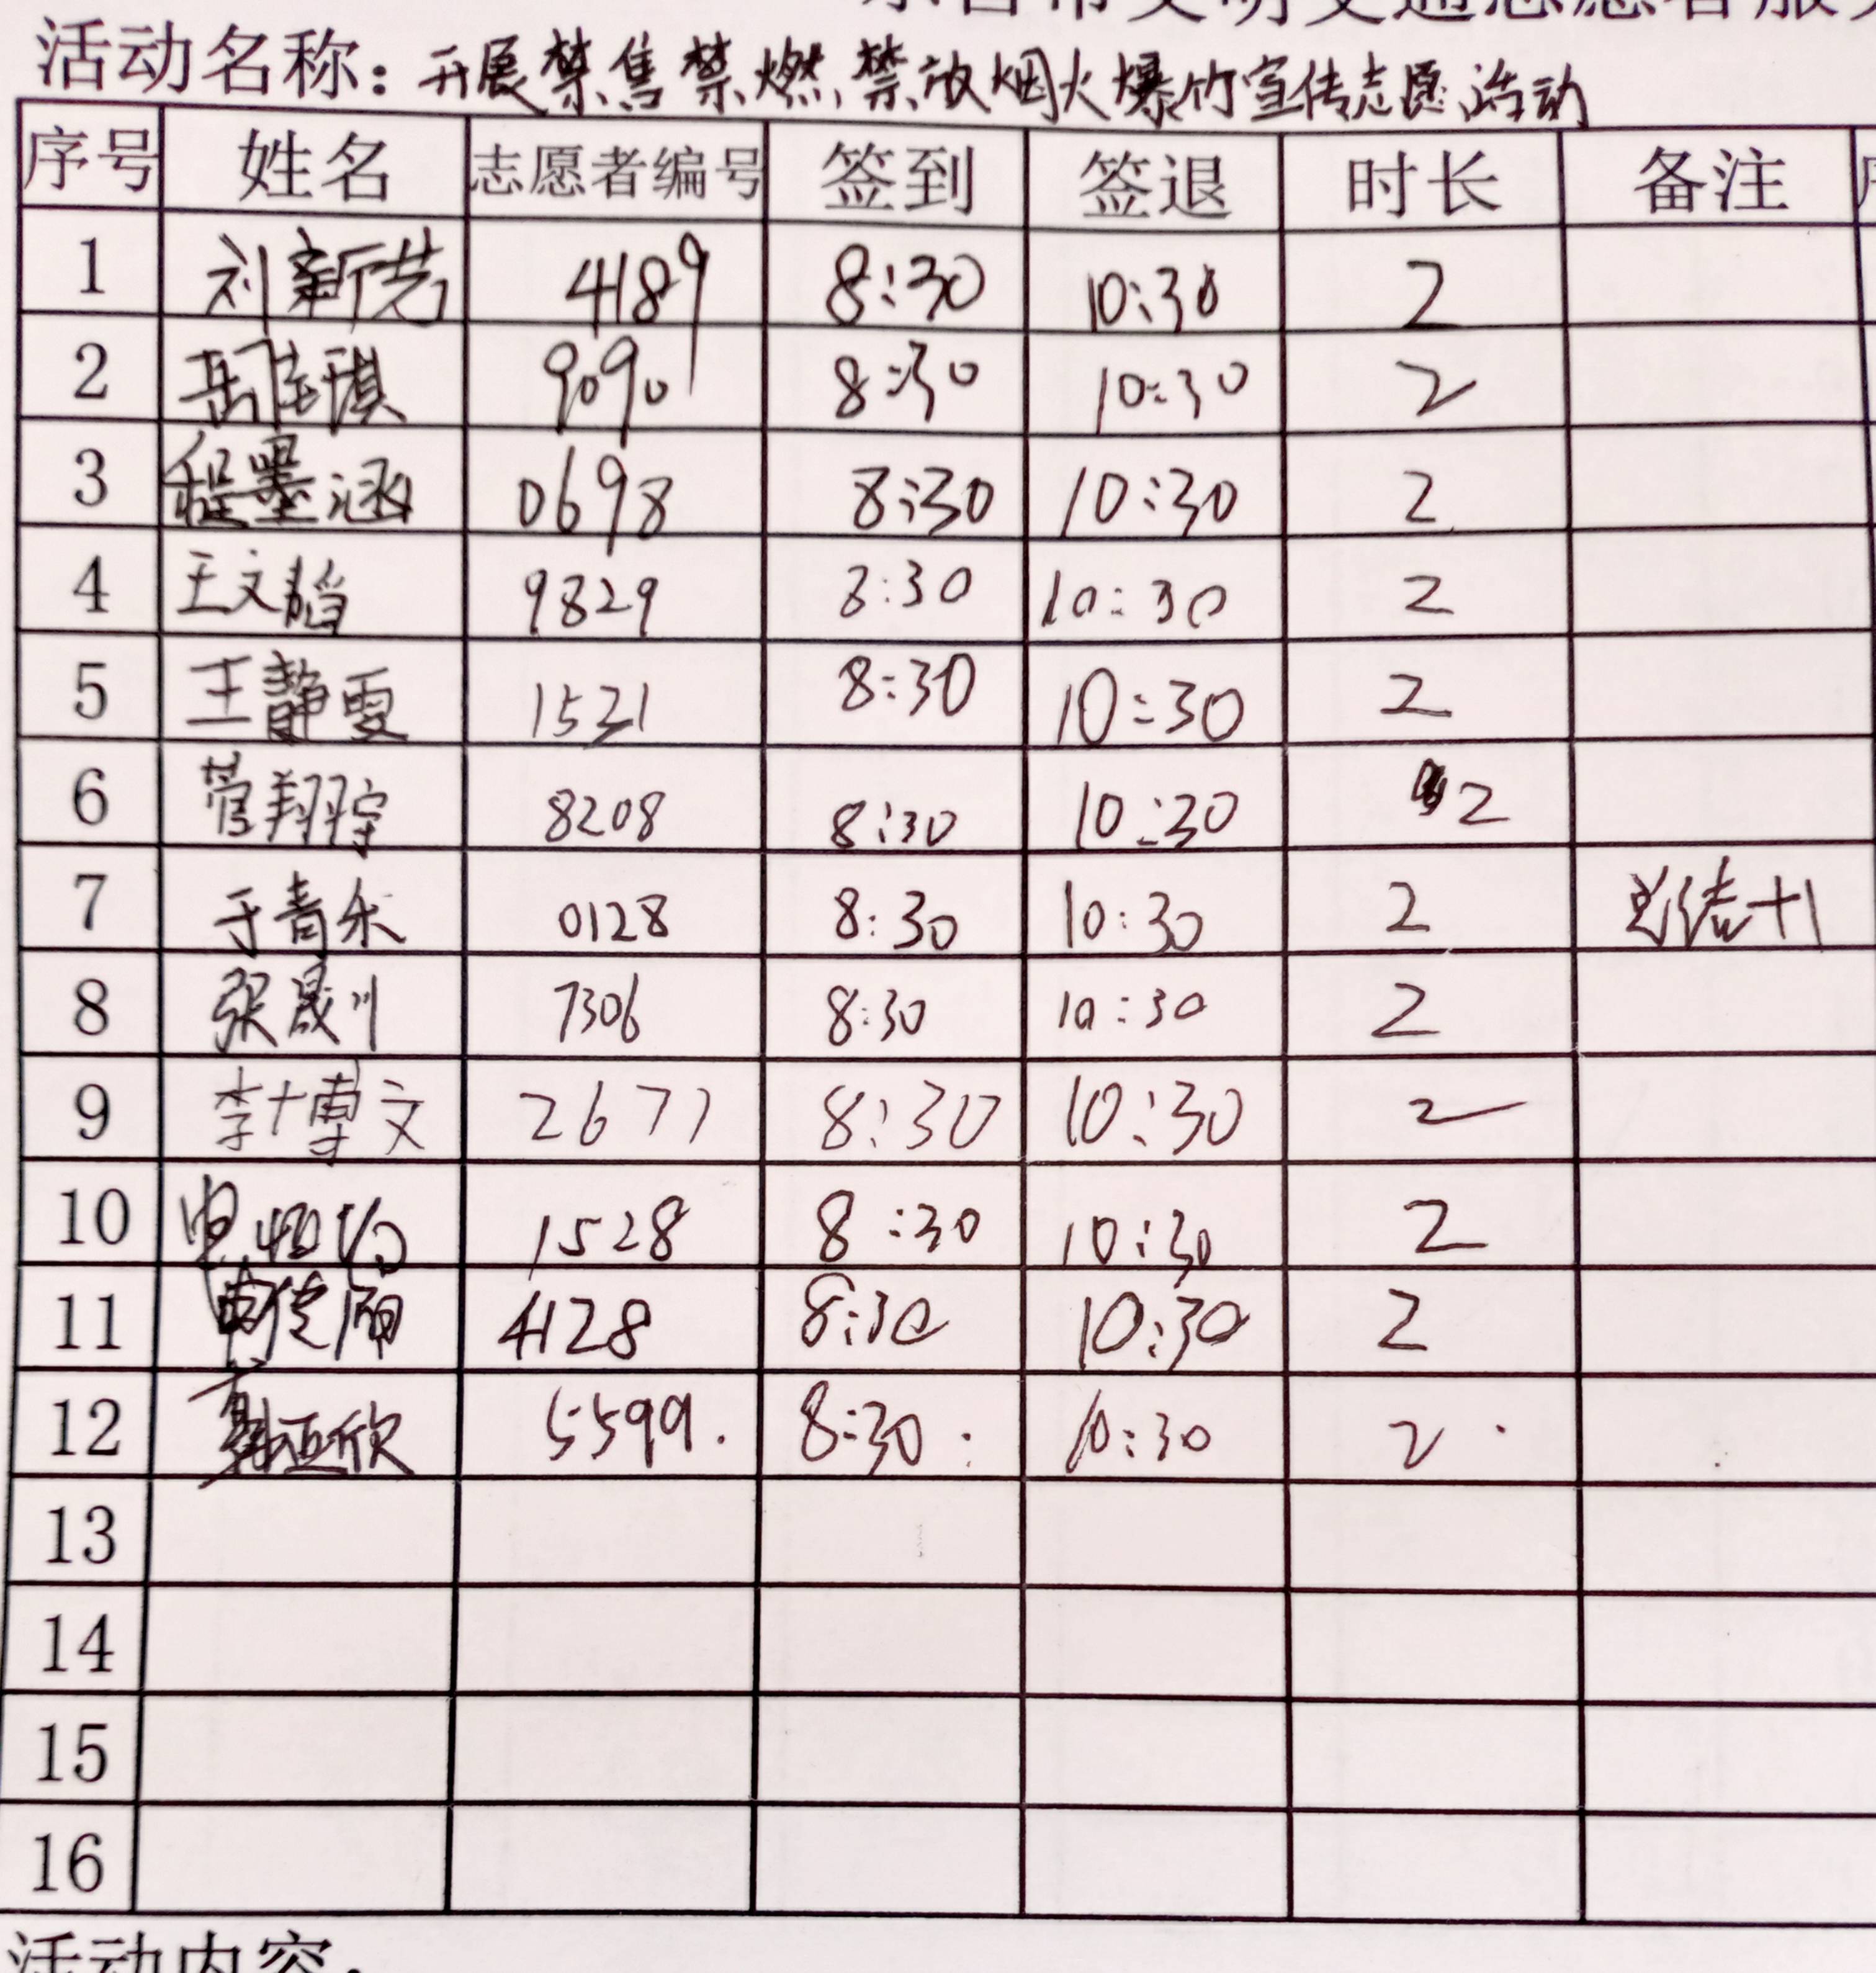 活动名称：开展禁售禁燃禁放烟火爆竹宣传志愿活动
序号 姓名 志愿者编号 签到 签退 时长 备注
1 刘新艺 4189 8:30 10:30 2
2 岳佳琪 9090 8:30 10:30 2
3 程墨涵 0698 8:30 10:30 2
4 王文韬 9829 8:30 10:30 2
5 王静雯 1531 8:30 10:30 2
6 菅翔宇 8208 8:30 10:30 2
7 于青禾 0128 8:30 10:30 2 总结+1
8 张晟川 7306 8:30 10:30 2
9 李博文 2677 8:30 10:30 2
10 1528 8:30 10:30 2
11 4128 8:30 10:30 2
12 5599. 8:30. 10:30 2.
13
14
15
16
活动内容：